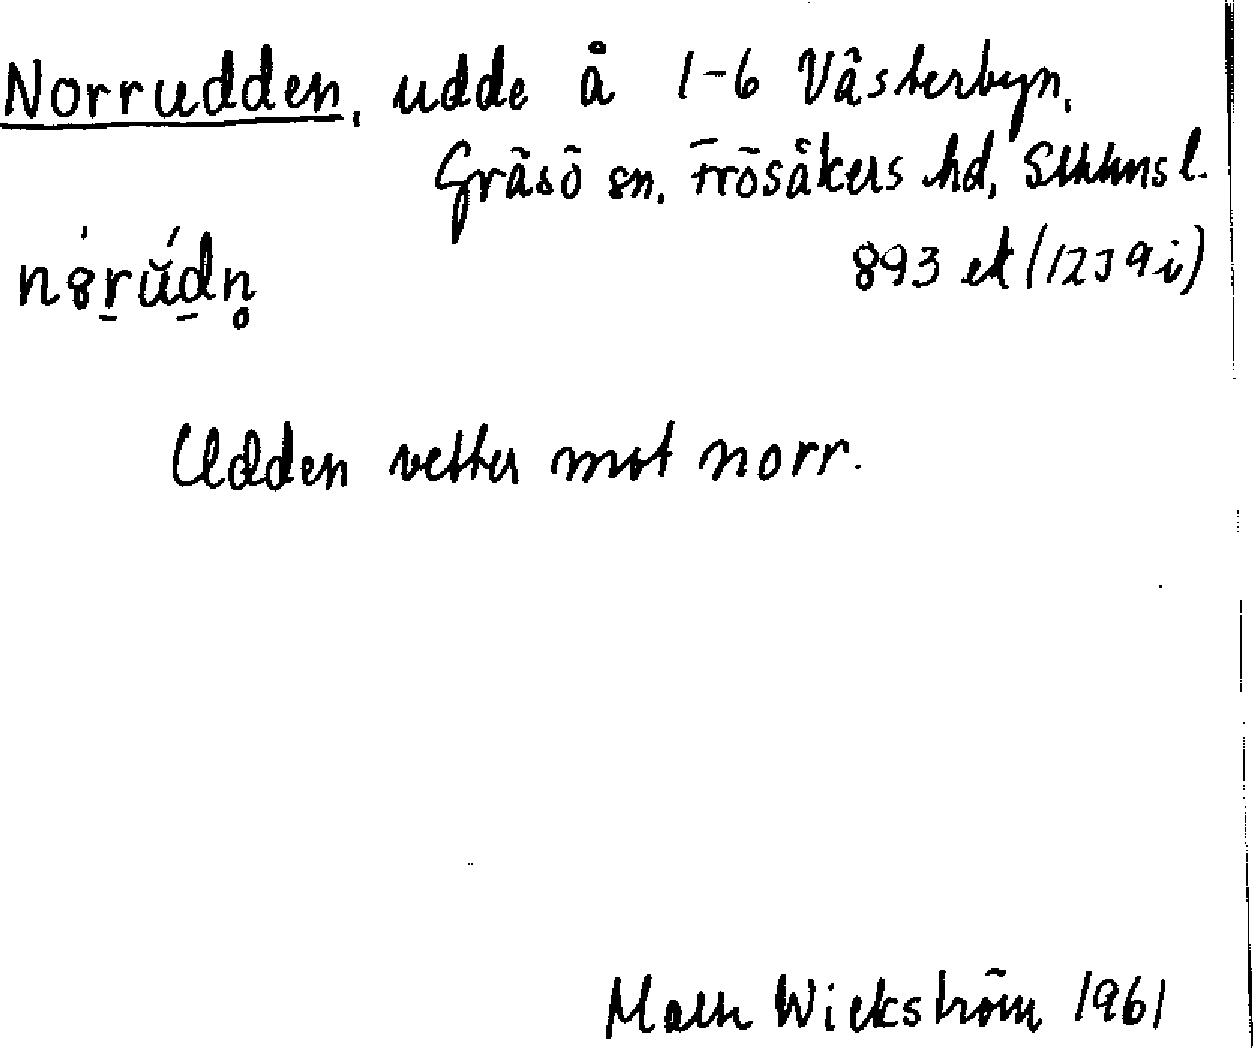 Norrudden, udde å 1-6 Västerbyn,
Gräsö sn, Frösåkers hd, Sthlms l.
893 ek (12J 9i)
Udden vetter mot norr.
Wickström 1961